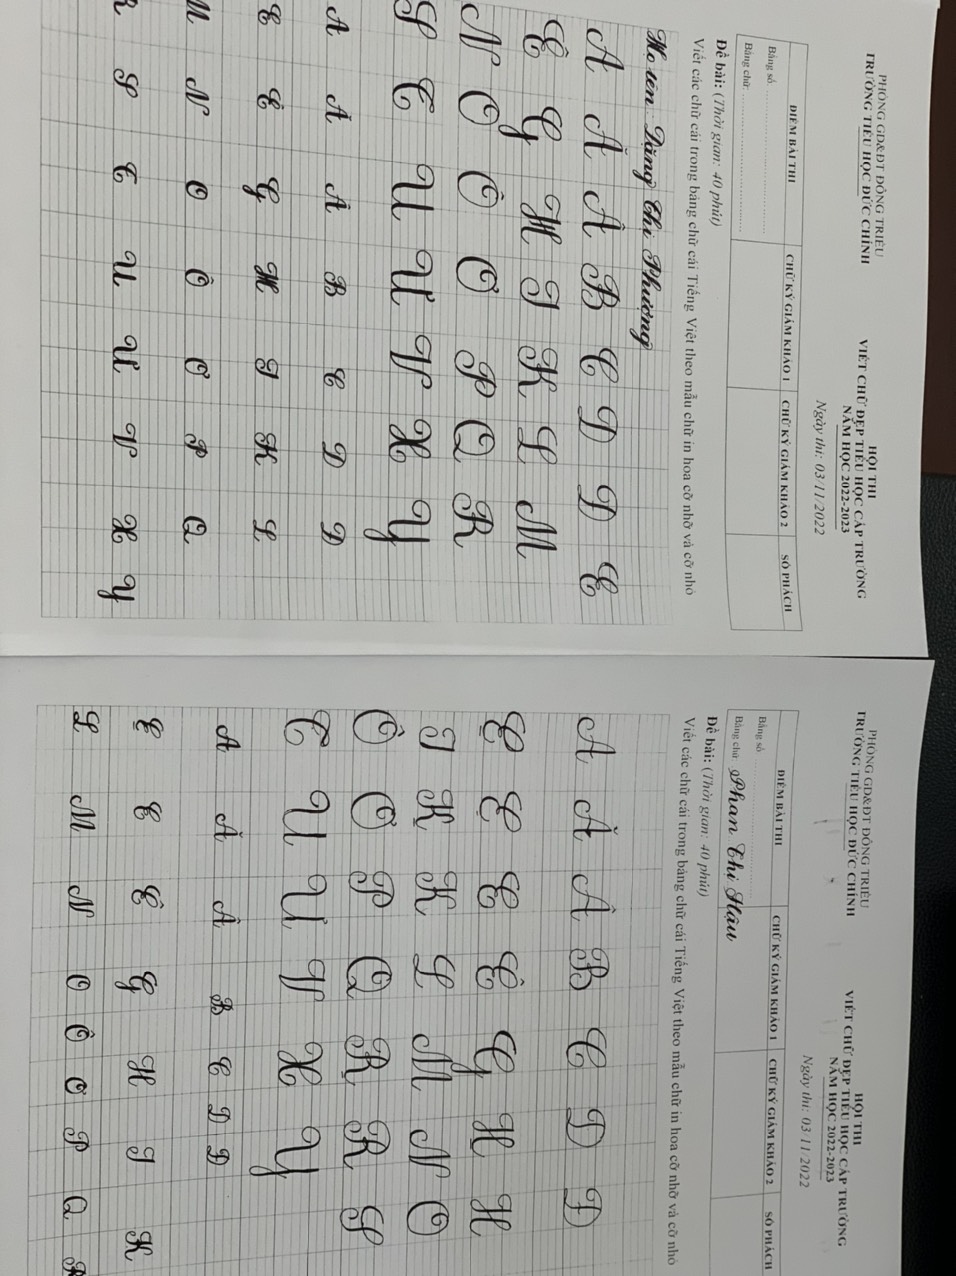 PHÒNG GD&ĐT ĐÔNG TRIỀU
TRƯỜNG TIỂU HỌC ĐỨC CHÍNH
HỘI THI
VIẾT CHỮ ĐẸP TIỂU HỌC CẤP TRƯỜNG
NĂM HỌC 2022-2023
Ngày thi: 03/11/2022
ĐIỂM BÀI THI CHỮ KÝ GIÁM KHẢO 1 CHỮ KÝ GIÁM KHẢO 2 SỐ PHÁCH
Bằng số
Bằng chữ
Đề bài: (Thời gian: 40 phút)
Viết các chữ cái trong bảng chữ cái Tiếng Việt theo mẫu chữ in hoa cỡ nhỡ và cỡ nhỏ
Họ tên: Đặng Thị Phượng
A Ă Â B C D Đ E
Ê G H I K L M
N O Ô Ơ P Q R
S T U Ư V X Y
A Ă Â B C D Đ
E Ê G H I K L
M N O Ô Ơ P Q
R S T U Ư V X Y
PHÒNG GD&ĐT ĐÔNG TRIỀU
TRƯỜNG TIỂU HỌC ĐỨC CHÍNH
HỘI THI
VIẾT CHỮ ĐẸP TIỂU HỌC CẤP TRƯỜNG
NĂM HỌC 2022-2023
Ngày thi: 03/11/2022
ĐIỂM BÀI THI CHỮ KÝ GIÁM KHẢO 1 CHỮ KÝ GIÁM KHẢO 2 SỐ PHÁCH
Bằng số
Bằng chữ Phan Thị Hậu
Đề bài: (Thời gian: 40 phút)
Viết các chữ cái trong bảng chữ cái Tiếng Việt theo mẫu chữ in hoa cỡ nhỡ và cỡ nhỏ
A Ă Â B C D Đ
E E E Ê G H H
I K K L M N O
Ô Ơ P Q R R S
T U Ư V X Y
A Ă Â B C D Đ
E E Ê G H I K
L M N O Ô Ơ P Q R